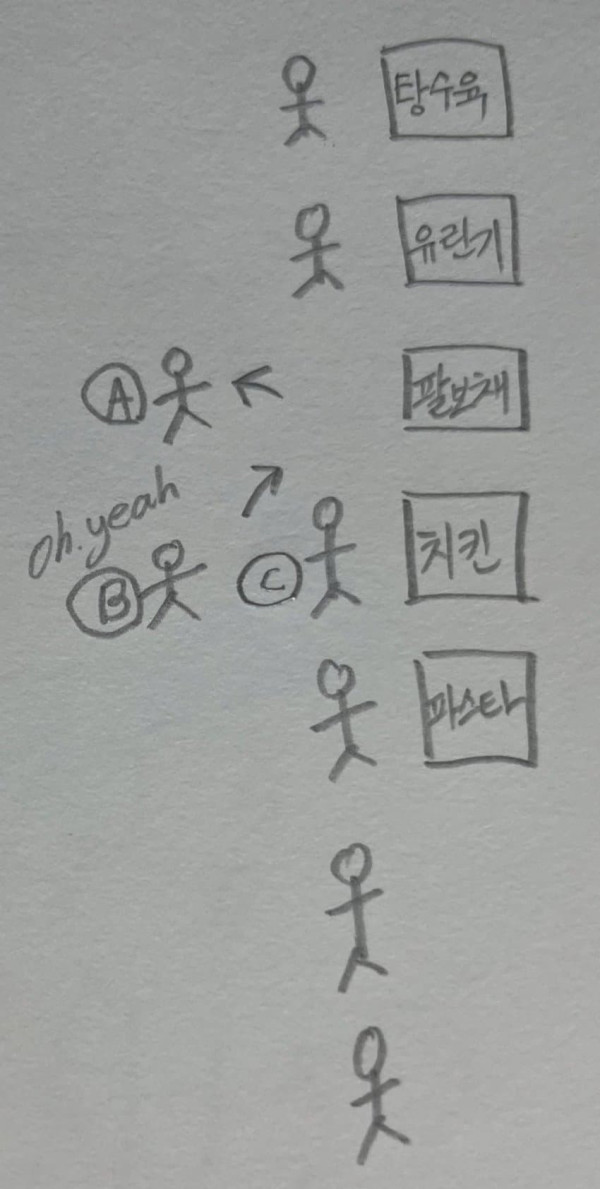 탕수육
유린기
팔보채
A
oh. yeah
B
C
치킨
파스타